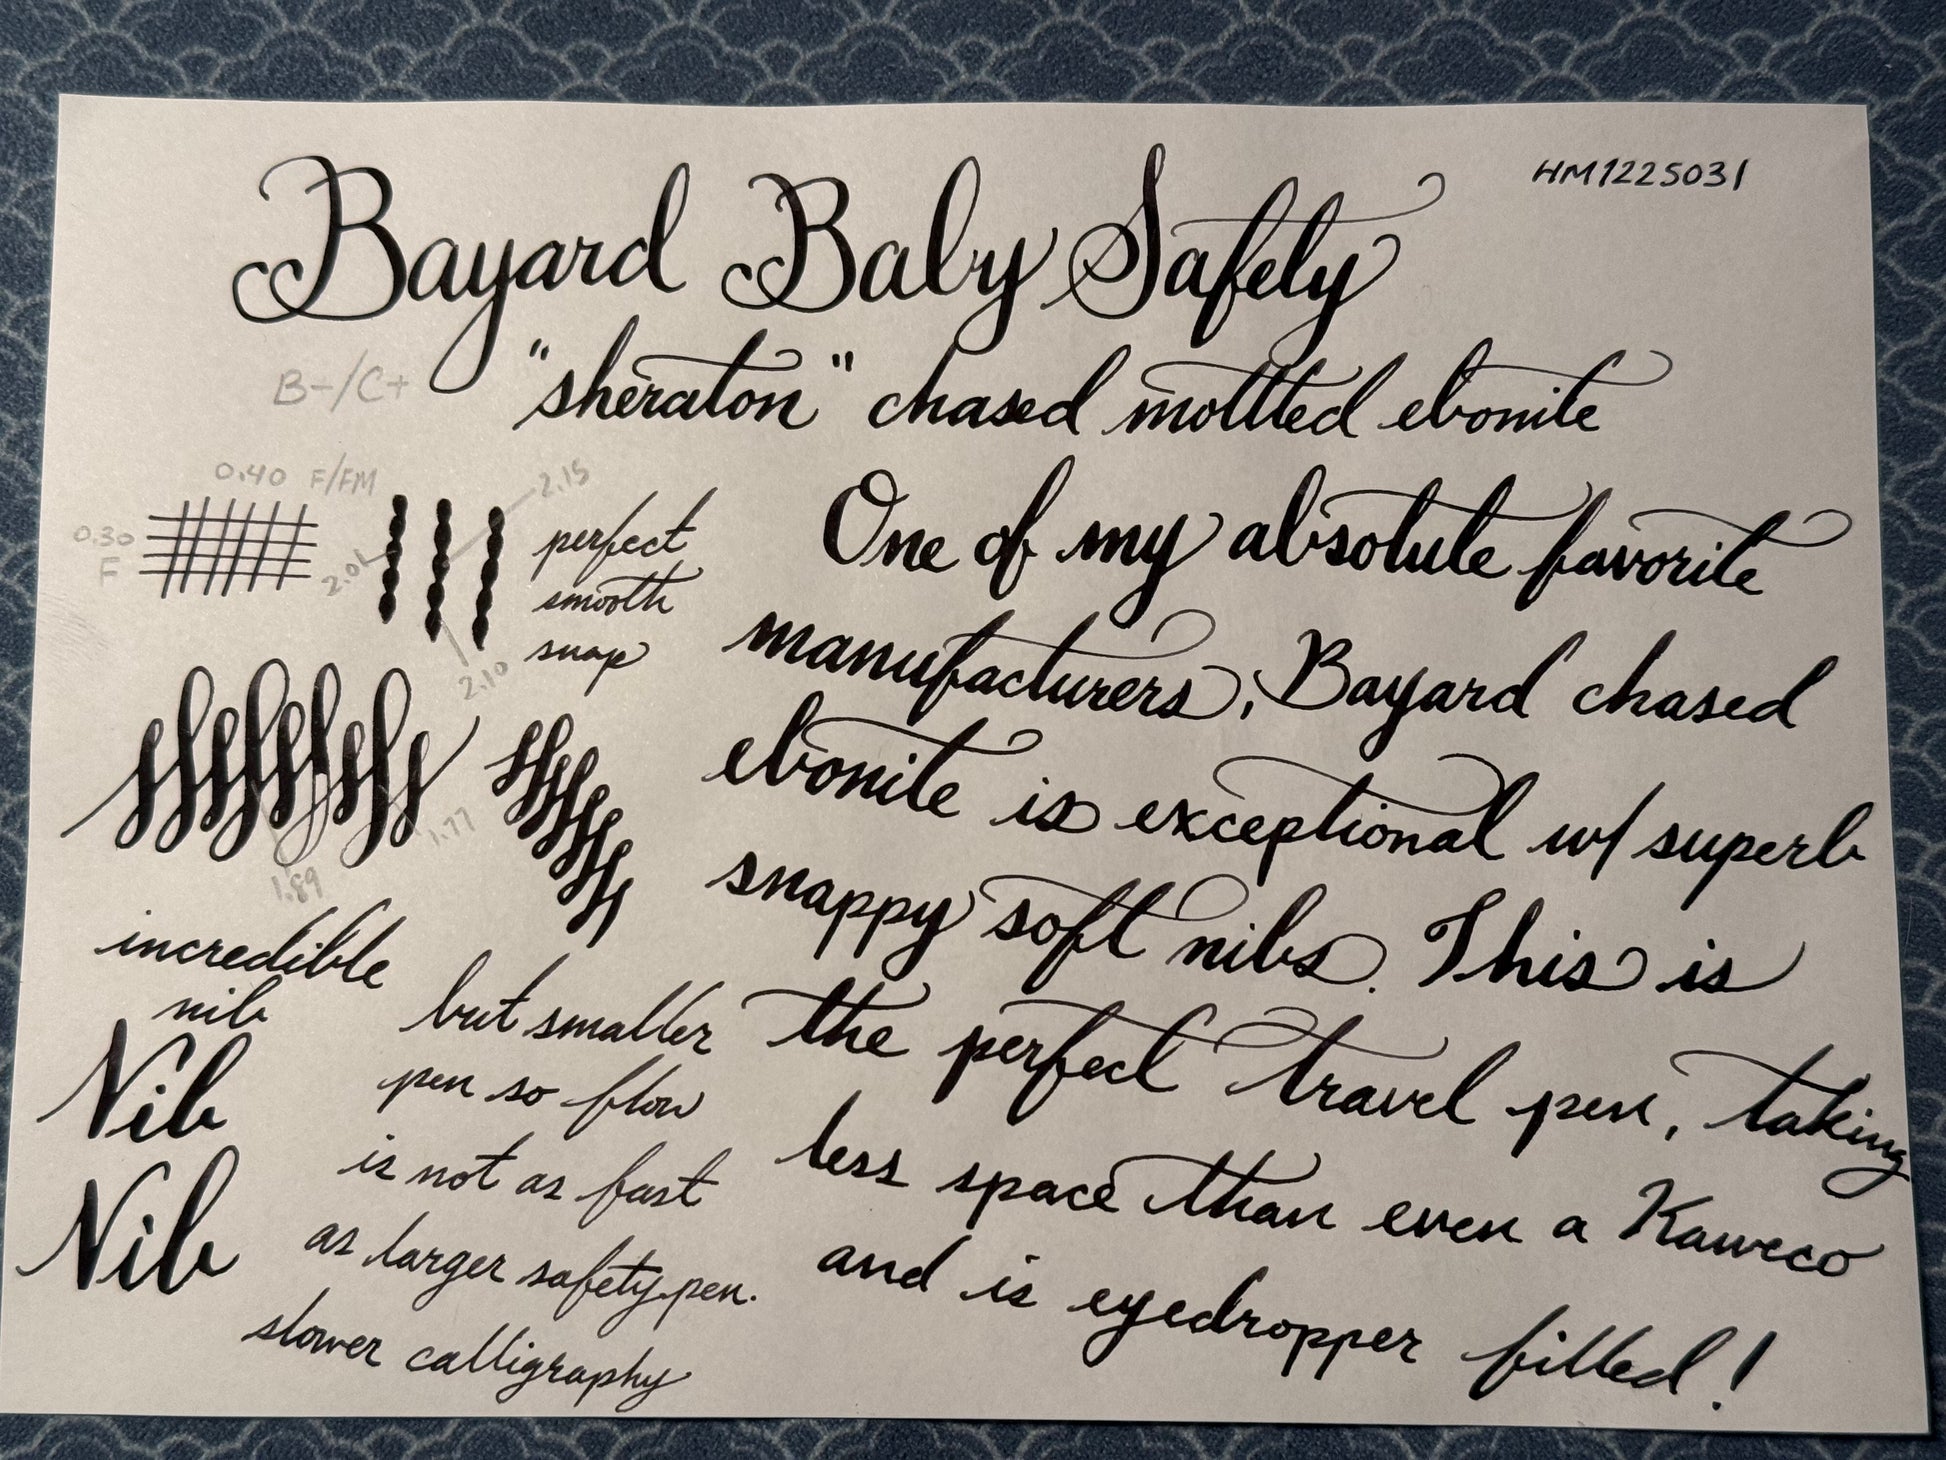 HM1225031
Bayard Baby Safety
"sheraton" chased mottled ebonite
B-/C+
0.40 F/FM
0.30
F
2.15
2.02
2.10
perfect
smooth
snap
1.77
1.89
incredible
nib
Nib
Nib
but smaller
pen so flow
is not as fast
as larger safety pen.
slower calligraphy
One of my absolute favorite
manufacturers, Bayard chased
ebonite is exceptional w/ superb
snappy soft nibs. This is
the perfect travel pen, taking
less space than even a Kaweco
and is eyedropper filled!